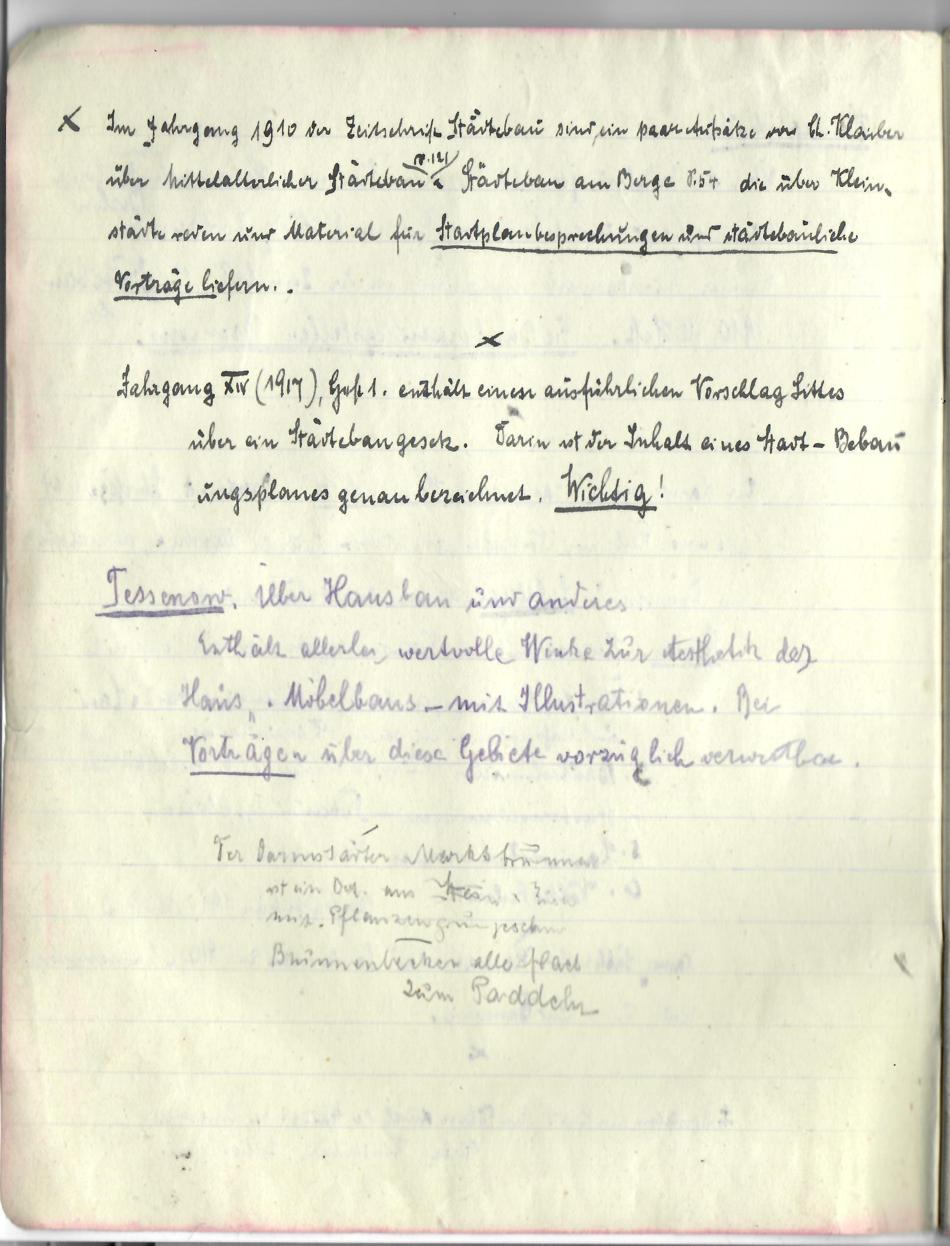 x Im Jahrgang 1910 der Zeitschrift Städtebau sind ein paar Aufsätze von Ch. Klaiber
über Mittelalterlicher Städtebau (S.121) u. Städtebau am Berge S.54 die über Klein-
städte reden und Material für Stadtplanbesprechungen und städtebauliche
Vorträge liefern.
x
Jahrgang XIV (1917), Heft 1. enthält einen ausführlichen Vorschlag Sittes
über ein Städtebaugesetz. Darin ist der Inhalt eines Stadt-Bebau
ungsplanes genau bezeichnet. Wichtig!
Tessenow. Über Hausbau und anderes
Enthält allerlei wertvolle Winke zur Aesthetik des
Haus u. Möbelbaus - mit Illustrationen. Bei
Vorträgen über diese Gebiete vorzüglich verwertbar.
Der Darmstädter Marktbrunnen
ist ein
mit Pflanzengrün
Brunnenbecken alle flach
zum Paddeln